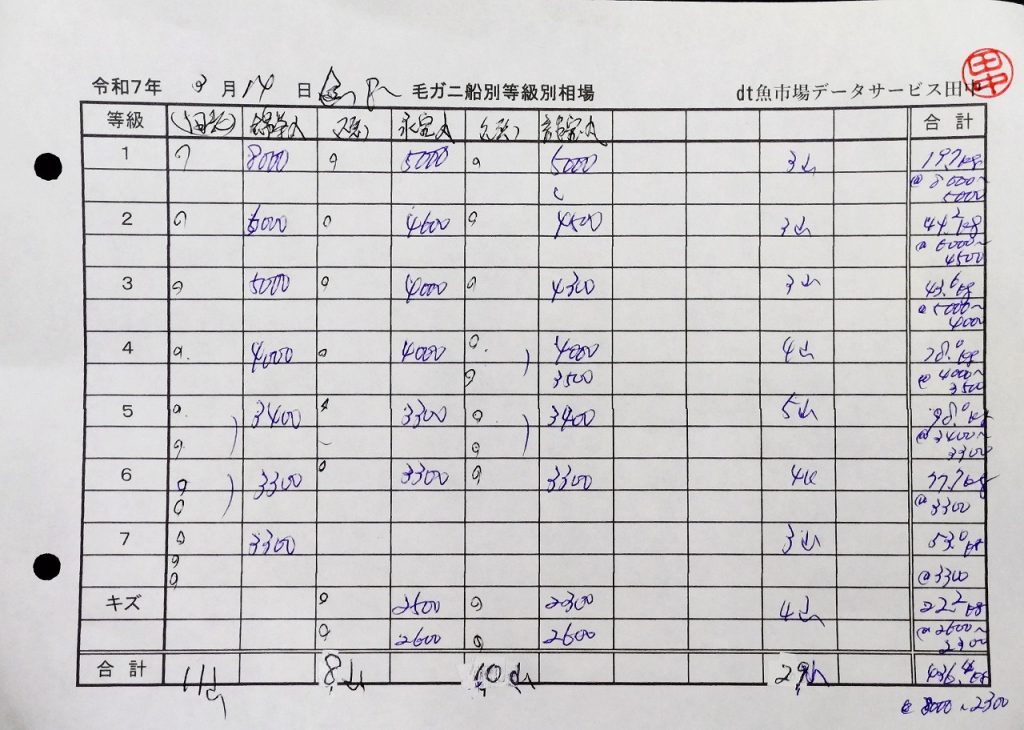 令和7年 3月14日 毛ガニ船別等級別相場 dt魚市場データサービス田中
田中
等級 合計
1 8000 5000 5000 3山 19.7kg
@8000~
5000
2 6000 4600 4500 3山 44.2kg
@6000~
4500
3 5000 4000 4300 3山 43.6kg
@5000~
4000
4 4000 4000 4000 4山 78.0kg
3500 @4000~
3500
5 3400 3300 3400 5山 98.0kg
@3400~
3300
6 3300 3300 3300 4山 77.7kg
@3300
7 3300 3山 53.0kg
@3300
キズ 2500 2300 4山 22.2kg
2600 2600 @2600~
2300
合計 11山 8山 10山 29山 436.4kg
@8000~2300